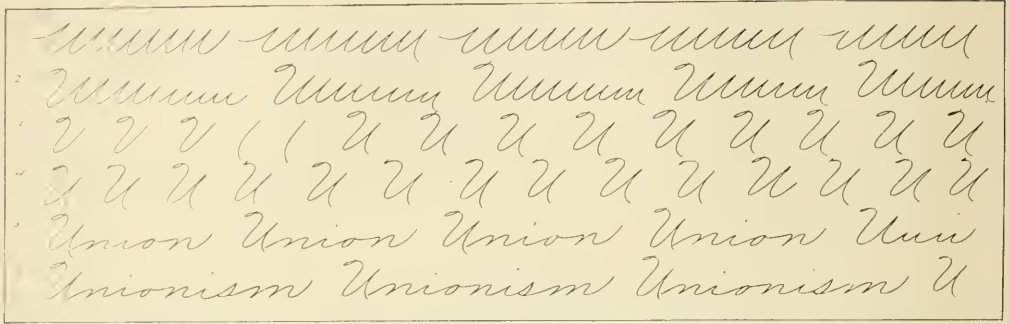 uuuuu uuuuu uuuuu uuuuu uuuu
Uuuuuu Uuuuuu Uuuuuu Uuuuuu Uuuuuu
U U U U U U U U U
U U U U U U U U U U U U U U
Union Union Union Union
Unionism Unionism Unionism U